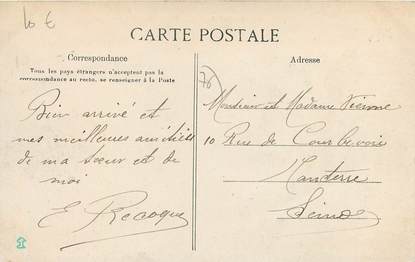 10 €
CARTE POSTALE
Correspondance
Adresse
Tous les pays étrangers n'acceptent pas la
correspondance au recto, se renseigner à la Poste
78
Monsieur et Madame
Bien arrivé et
mes meilleures amitiés
10 Rue de Courbevoie
de ma soeur et de
moi
Nanterre
Seine
E